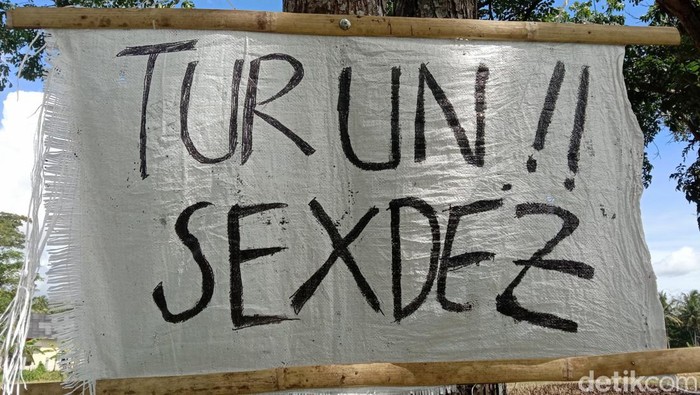 TURUN.!!
SEXDEZ
detikcom